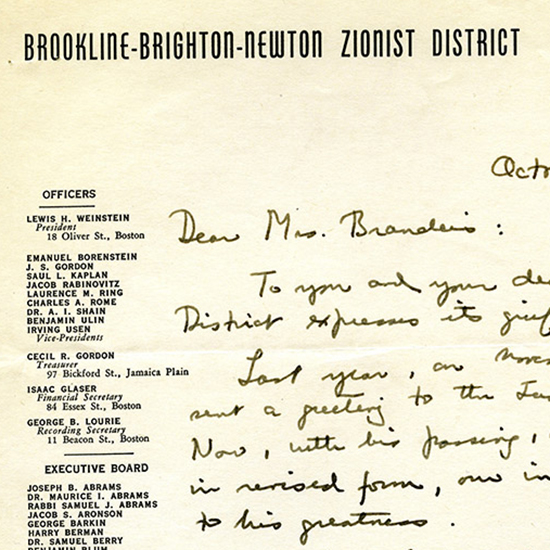 BROOKLINE-BRIGHTON-NEWTON ZIONIST DISTRICT
Octo
OFFICERS
LEWIS H. WEINSTEIN
President
18 Oliver St., Boston
EMANUEL BORENSTEIN
J. S. GORDON
SAUL L. KAPLAN
JACOB RABINOVITZ
LAURENCE M. RING
CHARLES A. ROME
DR. A. I. SHAIN
BENJAMIN ULIN
IRVING USEN
Vice-Presidents
CECIL R. GORDON
Treasurer
97 Bickford St., Jamaica Plain
ISAAC GLASER
Financial Secretary
84 Essex St., Boston
GEORGE B. LOURIE
Recording Secretary
11 Beacon St., Boston
EXECUTIVE BOARD
JOSEPH B. ABRAMS
DR. MAURICE I. ABRAMS
RABBI SAMUEL J. ABRAMS
JACOB S. ARONSON
GEORGE BARKIN
HARRY BERMAN
DR. SAMUEL BERRY
BENJAMIN BLUM
Dear Mrs. Brandeis:
To you and your de
District expresses its grief
Last year, on
sent a greeting to the
Now, with his passing,
in revised form, our in
to his greatness.